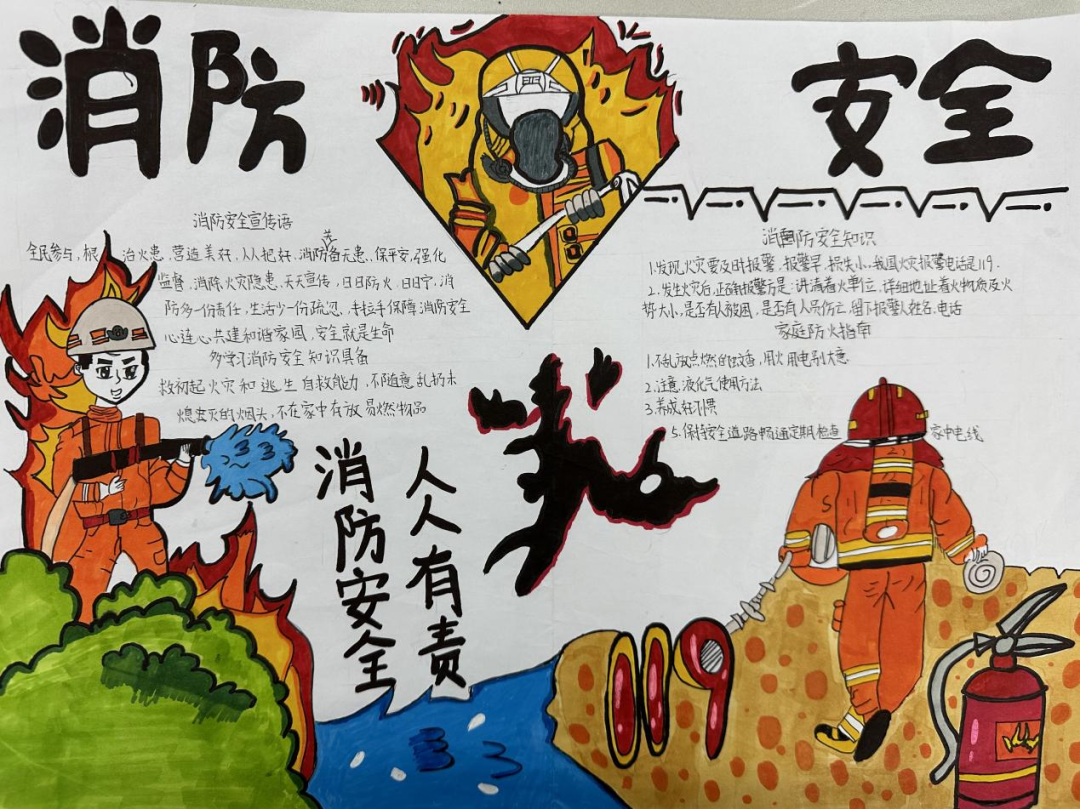 消防
安全
消防安全宣传语
全民参与,根 治火患,营造美好,人人把好,消防无患,保平安,强化
监督,消除火灾隐患,天天宣传,日日防火,日日宁,消
防多一份责任,生活少一份疏忽,手拉手保障消防安全
心连心共建和谐家园,安全就是生命
多学习消防安全知识具备
救初起火灾和逃生自救能力,不随意乱扔未
熄灭的烟头,不在家中存放易燃物品
消防安全知识
1.发现火灾要及时报警,报警早,损失小,我国火灾报警电话是119.
2.发生火灾后,正确报警方是:讲清着火单位,详细地址着火物质及火
势大小,是否有人被困,是否有人员伤亡,留下报警人姓名,电话
家庭防火指南
1.不乱放点燃的蚊香,用火用电别大意
2.注意液化气使用方法
3.养成好习惯
5.保持安全道路畅通定期检查 家中电线
人人有责
消防安全
119